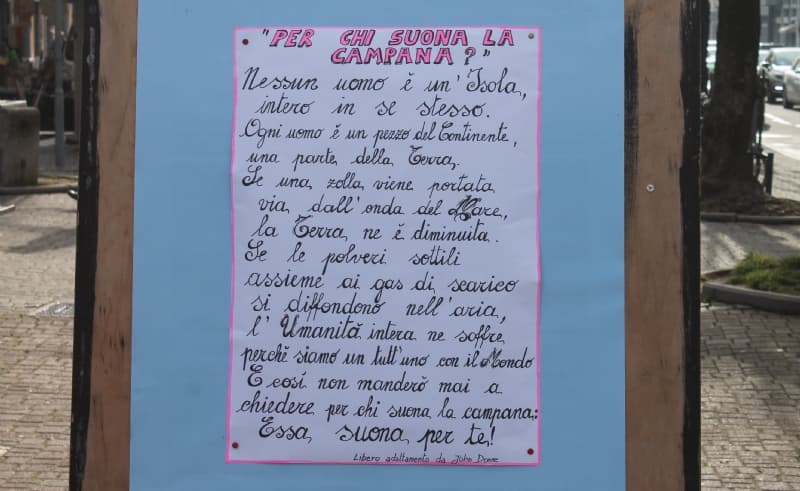 "PER CHI SUONA LA
CAMPANA?"
Nessun uomo è un' Isola,
intero in se stesso.
Ogni uomo è un pezzo del Continente,
una parte della Terra.
Se una zolla viene portata
via dall'onda del Mare,
la Terra ne è diminuita.
Se le polveri sottili
assieme ai gas di scarico
si diffondono nell'aria,
l' Umanità intera ne soffre,
perchè siamo un tutt'uno con il Mondo
E così non manderò mai a
chiedere per chi suona la campana:
Essa suona per te!
Libero adattamento da John Donne